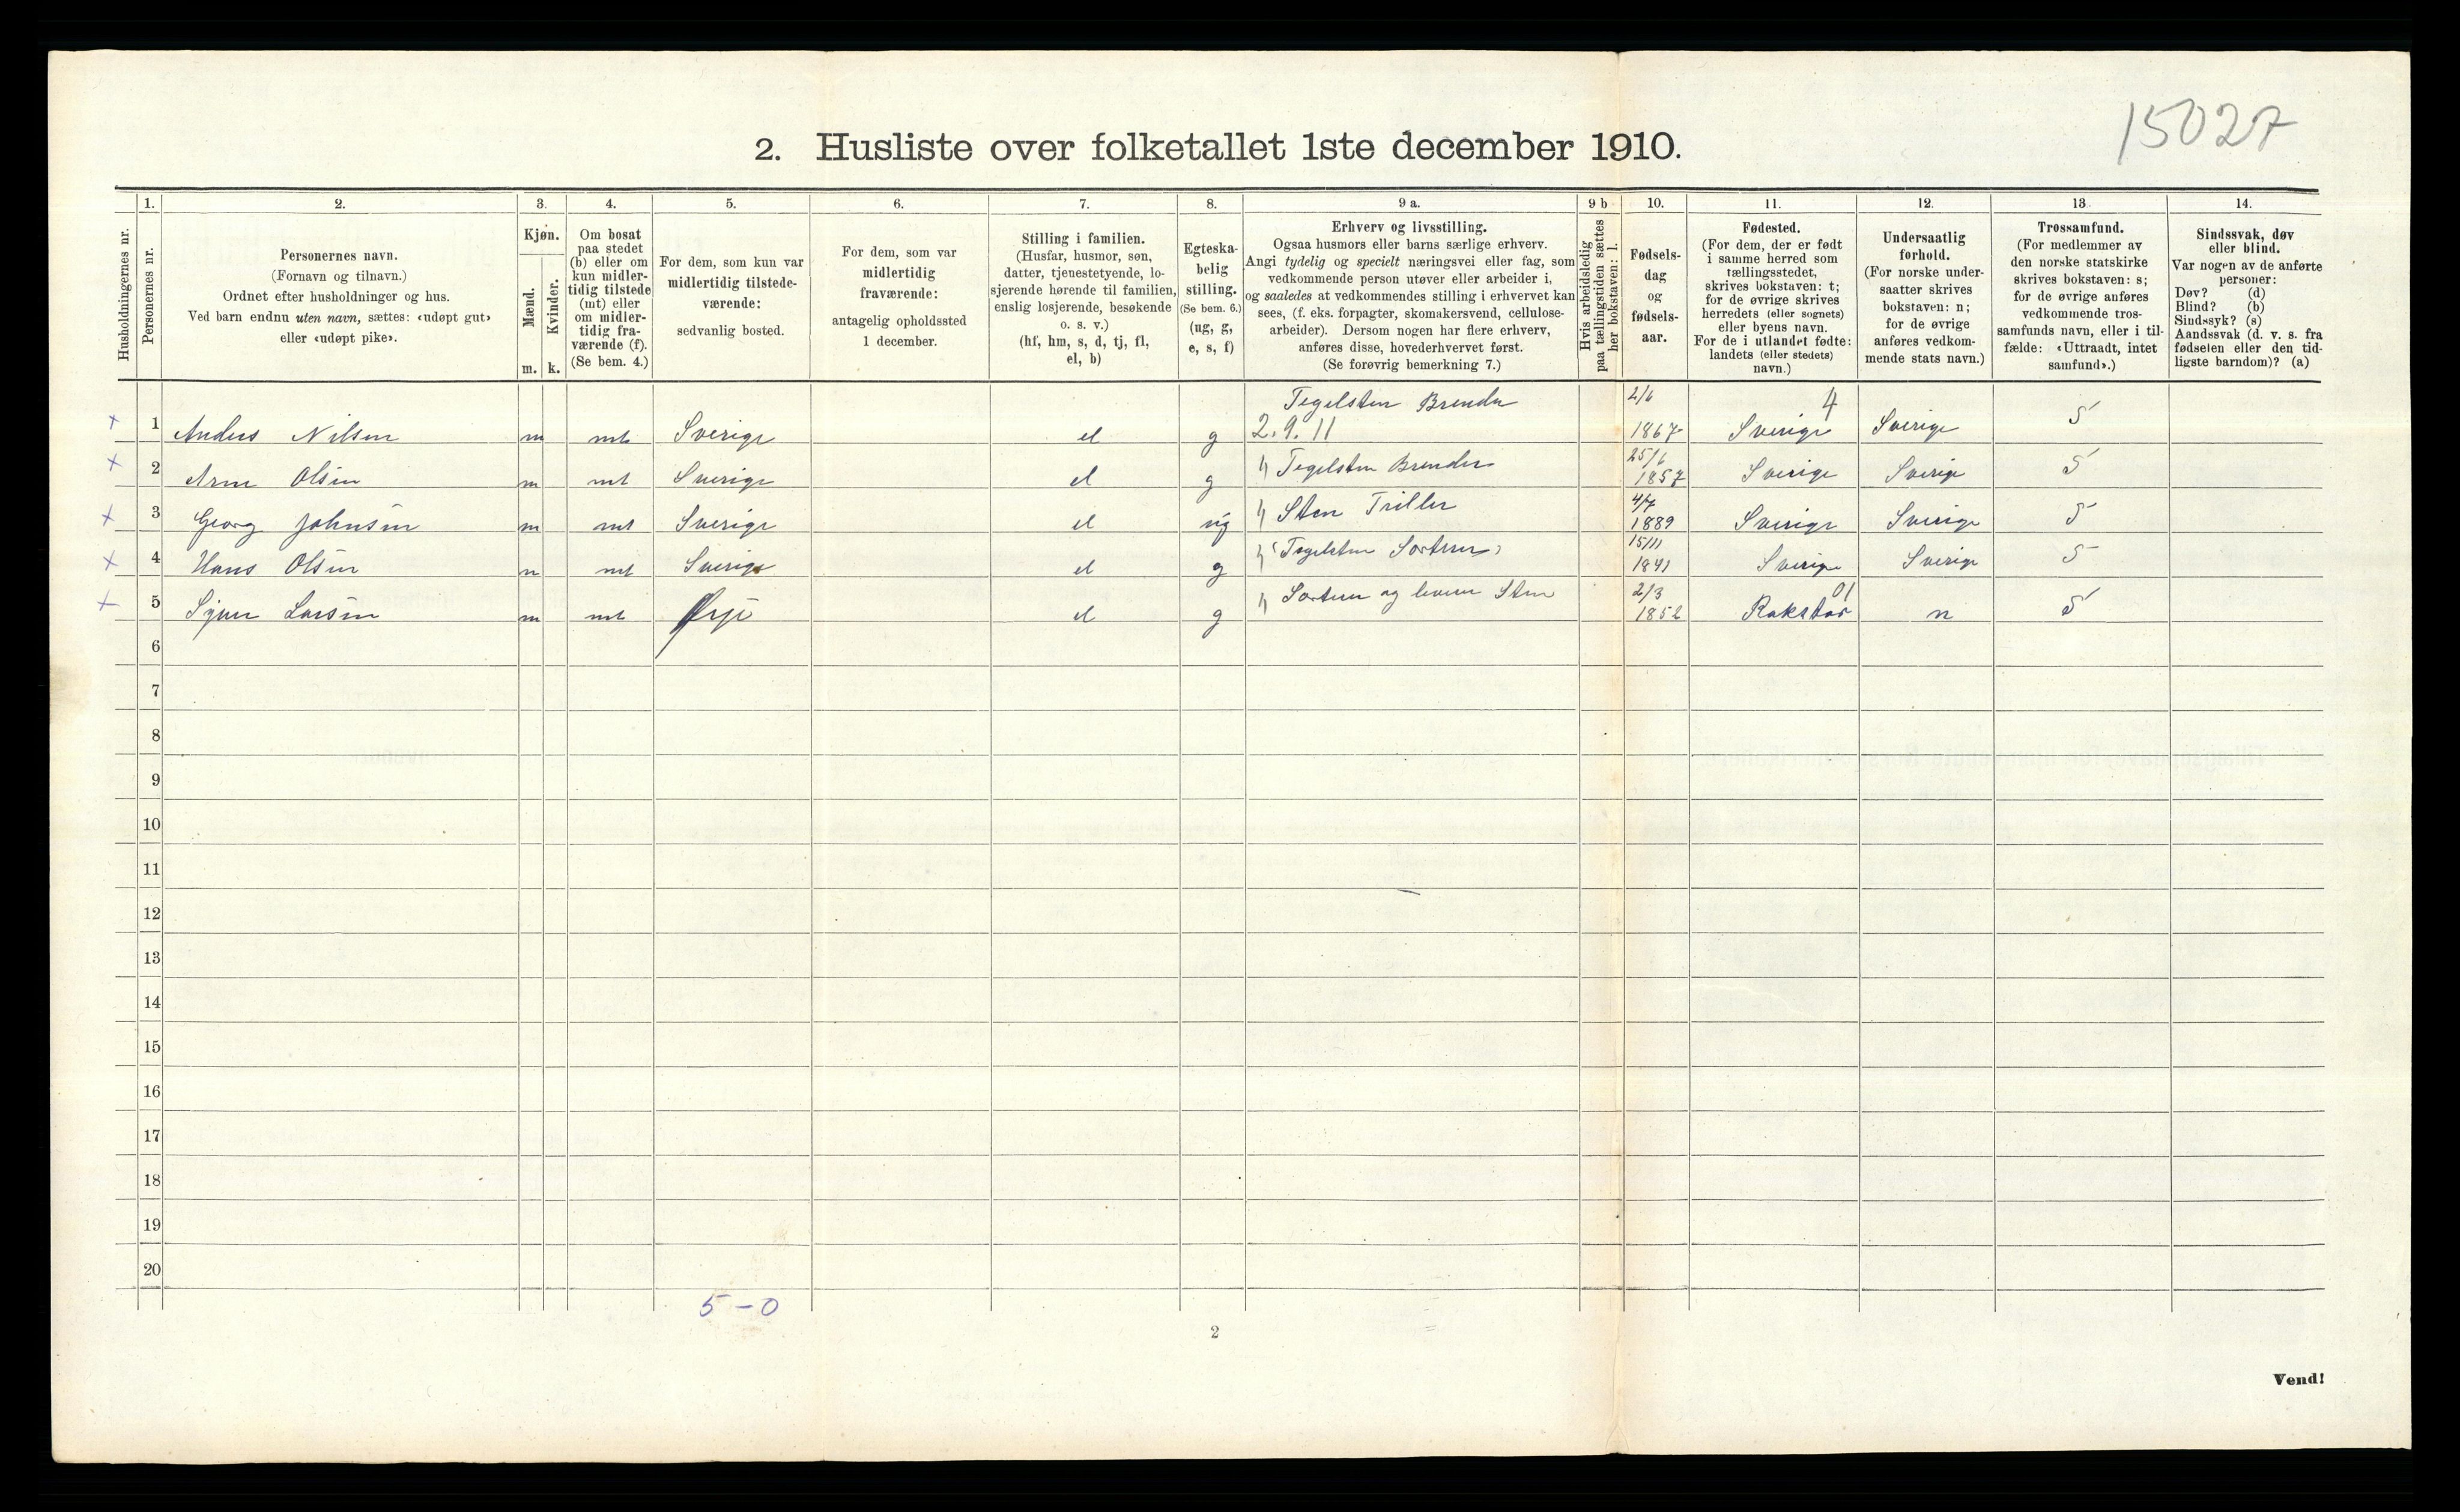 15027
2. Husliste over folketallet 1ste december 1910.
Husholdningernes nr.
1.
Personernes nr.
2.
Personernes navn.
(Fornavn og tilnavn.)
Ordnet efter husholdninger og hus.
Ved barn endnu uten navn, sættes: «udøpt gut»
eller «udøpt pike».
3.
Kjøn.
Mænd.
Kvinder.
m. k.
4.
Om bosat
paa stedet
(b) eller om
kun midler-
tidig tilstede
(mt) eller
om midler-
tidig fra-
værende (f).
(Se bem. 4.)
5.
For dem, som kun var
midlertidig tilstede-
værende:
sedvanlig bosted.
6.
For dem, som var
midlertidig
fraværende:
antagelig opholdssted
1 december.
7.
Stilling i familien.
(Husfar, husmor, søn,
datter, tjenestetyende, lo-
sjerende hørende til familien,
enslig losjerende, besøkende
o. s. v.)
(hf, hm, s, d, tj, fl,
el, b)
8.
Egteska-
belig
stilling.
(Se bem. 6.)
(ug, g,
e, s, f)
9 a.
Erhverv og livsstilling.
Ogsaa husmors eller barns særlige erhverv.
Angi tydelig og specielt næringsvei eller fag, som
vedkommende person utøver eller arbeider i,
og saaledes at vedkommendes stilling i erhvervet kan
sees, (f. eks. forpagter, skomakersvend, cellulose-
arbeider). Dersom nogen har flere erhverv,
anføres disse, hovederhvervet først.
(Se forøvrig bemerkning 7.)
9 b
Hvis arbeidsledig
paa tællingstiden sættes
her bokstaven: l.
10.
Fødsels-
dag
og
fødsels-
aar.
11.
Fødested.
(For dem, der er født
i samme herred som
tællingsstedet,
skrives bokstaven: t;
for de øvrige skrives
herredets (eller sognets)
eller byens navn.
For de i utlandet fødte:
landets (eller stedets)
navn.)
12.
Undersaatlig
forhold.
(For norske under-
saatter skrives
bokstaven: n;
for de øvrige
anføres vedkom-
mende stats navn.)
13.
Trossamfund.
(For medlemmer av
den norske statskirke
skrives bokstaven: s;
for de øvrige anføres
vedkommende tros-
samfunds navn, eller i til-
fælde: «Uttraadt, intet
samfund».)
14.
Sindssvak, døv
eller blind.
Var nogen av de anførte
personer:
Døv? (d)
Blind? (b)
Sindssyk? (s)
Aandssvak (d. v. s. fra
fødselen eller den tid-
ligste barndom)? (a)
Tegelsten Brender 2/6 4
x 1 Anders Nilsen m mt Sverige el g 2.9.11 1867 Sverige Sverige S
x 2 Arne Olsen m mt Sverige el g " Tegelsten Brender 25/6 1857 Sverige Sverige S
x 3 Georg Johnsen m mt Sverige el ug " Sten Triller 4/7 1889 Sverige Sverige S
x 4 Hans Olsen m mt Sverige el g " Tegelsten Sorterer 15/11 1841 Sverige Sverige S
x 5 Larsen m mt Ørje el g " Sorterer og leverer Sten 2/3 1852 01 Rakstad n S
6
7
8
9
10
11
12
13
14
15
16
17
18
19
20
5 - 0
2
Vend!